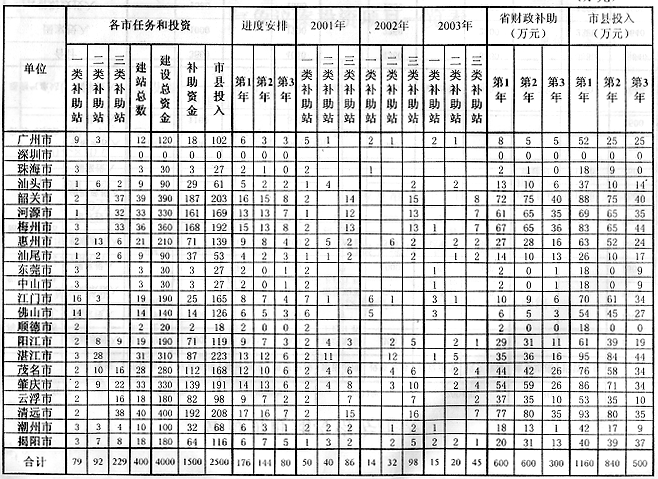 各市任务和投资 进度安排 2001年 2002年 2003年 省财政补助（万元） 市县投入（万元）
单位 一类补助站 二类补助站 三类补助站 建站总数 建设总资金 补助资金 市县投入 第1年 第2年 第3年 一类补助站 二类补助站 三类补助站 一类补助站 二类补助站 三类补助站 一类补助站 二类补助站 三类补助站 第1年 第2年 第3年 第1年 第2年 第3年
广州市 9 3 12 120 18 102 6 3 3 5 1 2 1 2 1 8 5 5 52 25 25
深圳市 0 0 0 0 0 0 0
珠海市 3 3 30 3 27 2 1 0 2 1 2 1 0 18 9 0
汕头市 1 6 2 9 90 29 61 5 2 2 1 4 2 2 13 10 6 37 10 14
韶关市 2 37 39 390 187 203 16 15 8 2 14 15 8 72 75 40 88 75 40
河源市 1 32 33 330 161 169 13 13 7 1 12 13 7 61 65 35 69 65 35
梅州市 3 33 36 360 168 192 15 13 8 2 13 13 1 7 67 65 36 83 65 44
惠州市 2 13 6 21 210 71 139 9 8 4 2 5 2 6 2 2 2 27 28 16 63 52 24
汕尾市 1 2 6 9 90 37 53 4 2 3 1 1 2 2 1 2 14 10 13 26 10 17
东莞市 3 3 30 3 27 2 0 1 2 1 2 0 1 18 0 9
中山市 3 3 30 3 27 2 0 1 2 1 2 0 1 18 0 9
江门市 16 3 19 190 25 165 8 7 4 7 1 6 1 3 1 10 9 6 70 61 34
佛山市 14 14 140 14 126 6 5 3 6 5 3 6 5 3 54 45 27
顺德市 2 2 20 2 18 2 0 0 2 2 0 0 18 0 0
阳江市 2 8 9 19 190 71 119 9 7 3 2 4 3 2 5 2 1 29 31 11 61 39 19
湛江市 3 28 31 310 87 223 13 12 6 2 11 12 1 5 35 36 16 95 84 44
茂名市 2 10 16 28 280 112 168 12 10 6 2 4 6 4 6 2 4 44 42 26 76 58 34
肇庆市 2 9 22 33 330 139 191 14 13 6 2 4 8 3 10 2 4 54 59 26 86 71 34
云浮市 2 16 18 180 82 98 9 7 2 2 7 7 2 37 35 10 53 35 10
清远市 2 38 40 400 192 208 17 16 7 2 15 16 7 77 80 35 93 80 35
潮州市 3 3 4 10 100 32 68 6 3 1 2 2 2 1 2 1 18 13 1 42 17 9
揭阳市 3 7 8 18 180 64 116 6 7 5 1 3 2 2 5 2 2 1 20 31 13 40 39 37
合计 79 92 229 400 4000 1500 2500 176 144 80 50 40 86 14 32 98 15 20 45 600 600 300 1160 840 500